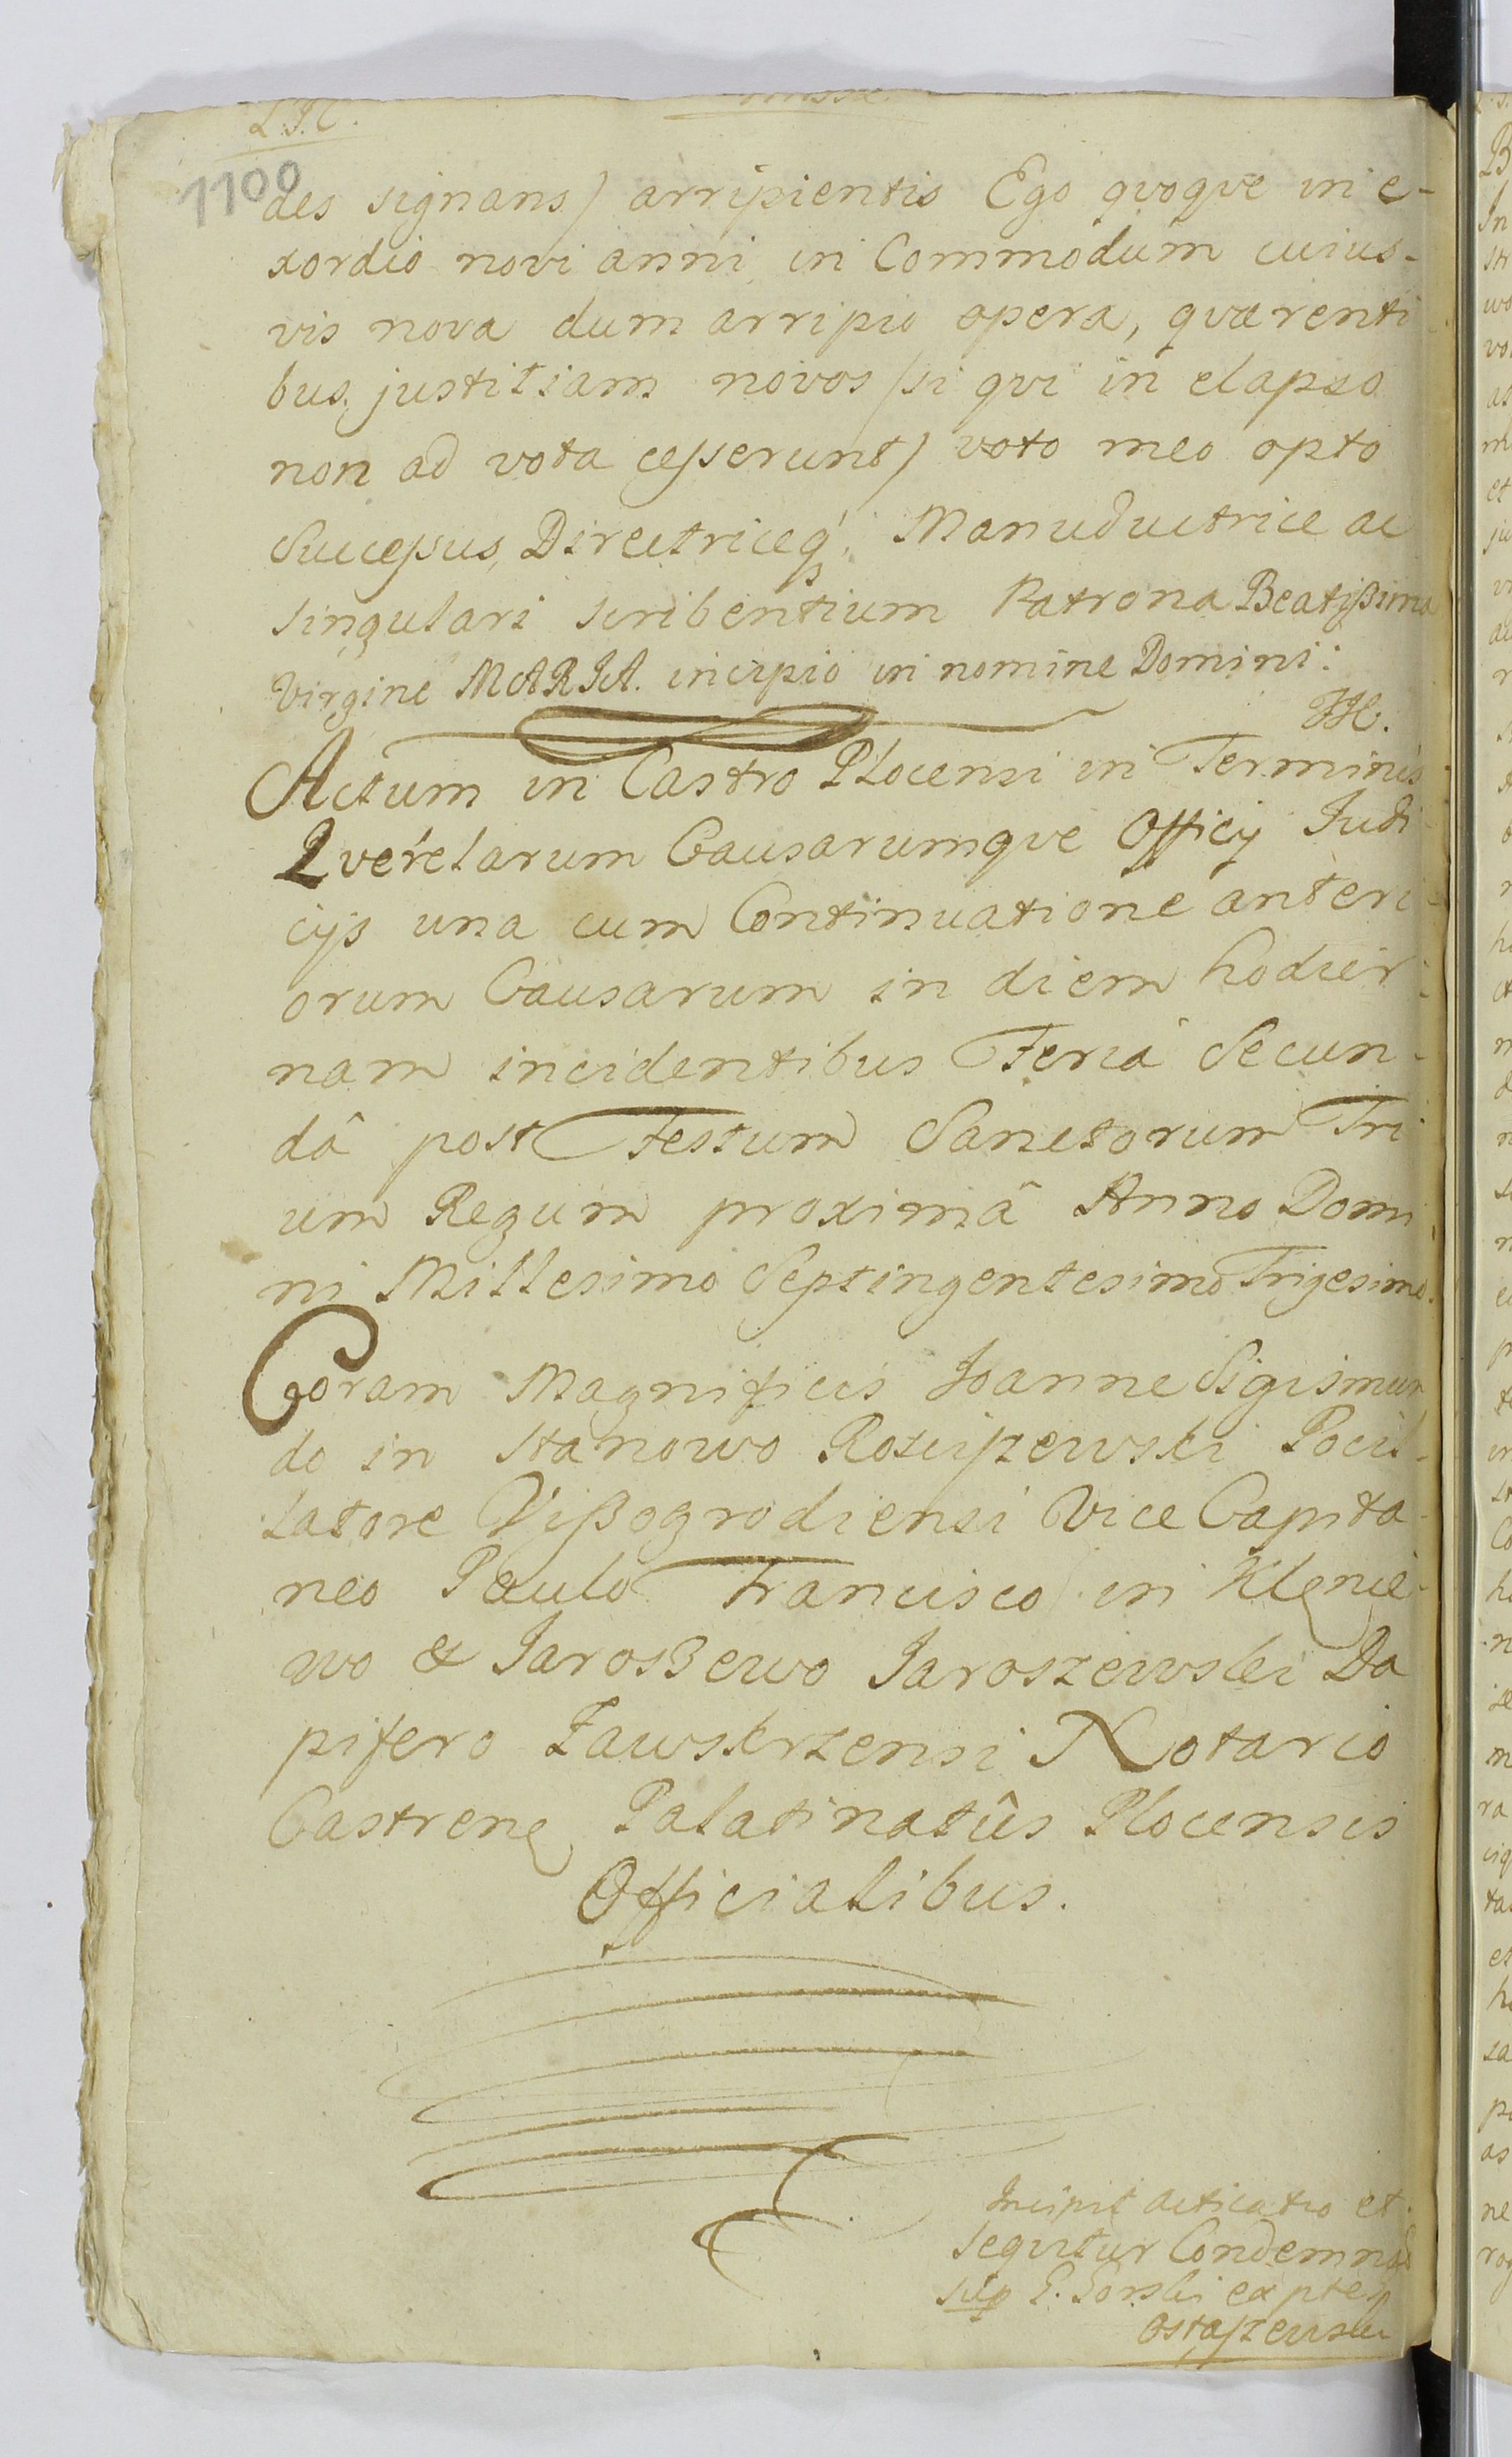 L.J.C.
1100
des signans) arripientis Ego qvoqve in e-
xordio novi anni in Commodum cuius-
vis nova dum arripio opera, qværenti
bus justitiam novos (si qvi in elapso
non ad vota cesserunt) voto meo opto
Successus, Directriceq; Manuductrice ac
singulari scribentium Patrona Beatißima
Virgine MARIA. incipio in nomine Domini:
Actum in Castro Plocensi in Terminis
Qverelarum Causarumqve Officij Judi
cijs una cum Continuatione anteri-
orum Causarum in diem hodier-
nam incidentibus Feria Secun-
dâ post Festum Sanctorum Tri
um Regum proximâ Anno Domi
ni Millesimo Septingentesimo Trigesimo.
Coram Magnificis Joanne Sigismun
do in Stanowo Rosciszewski Pocil-
latore Vißogrodiensi Vice Capita-
neo Paulo Francisco in Klenie-
wo & Jaroszewo Jaroszewski Da
pifero Zawskrzensi Notario
Castren Palatinatûs Plocensis
Officialibus.
Incipit acticatio et
seqvitur Condemnat
sup G. Gorski ex ptey
Ostaszewski